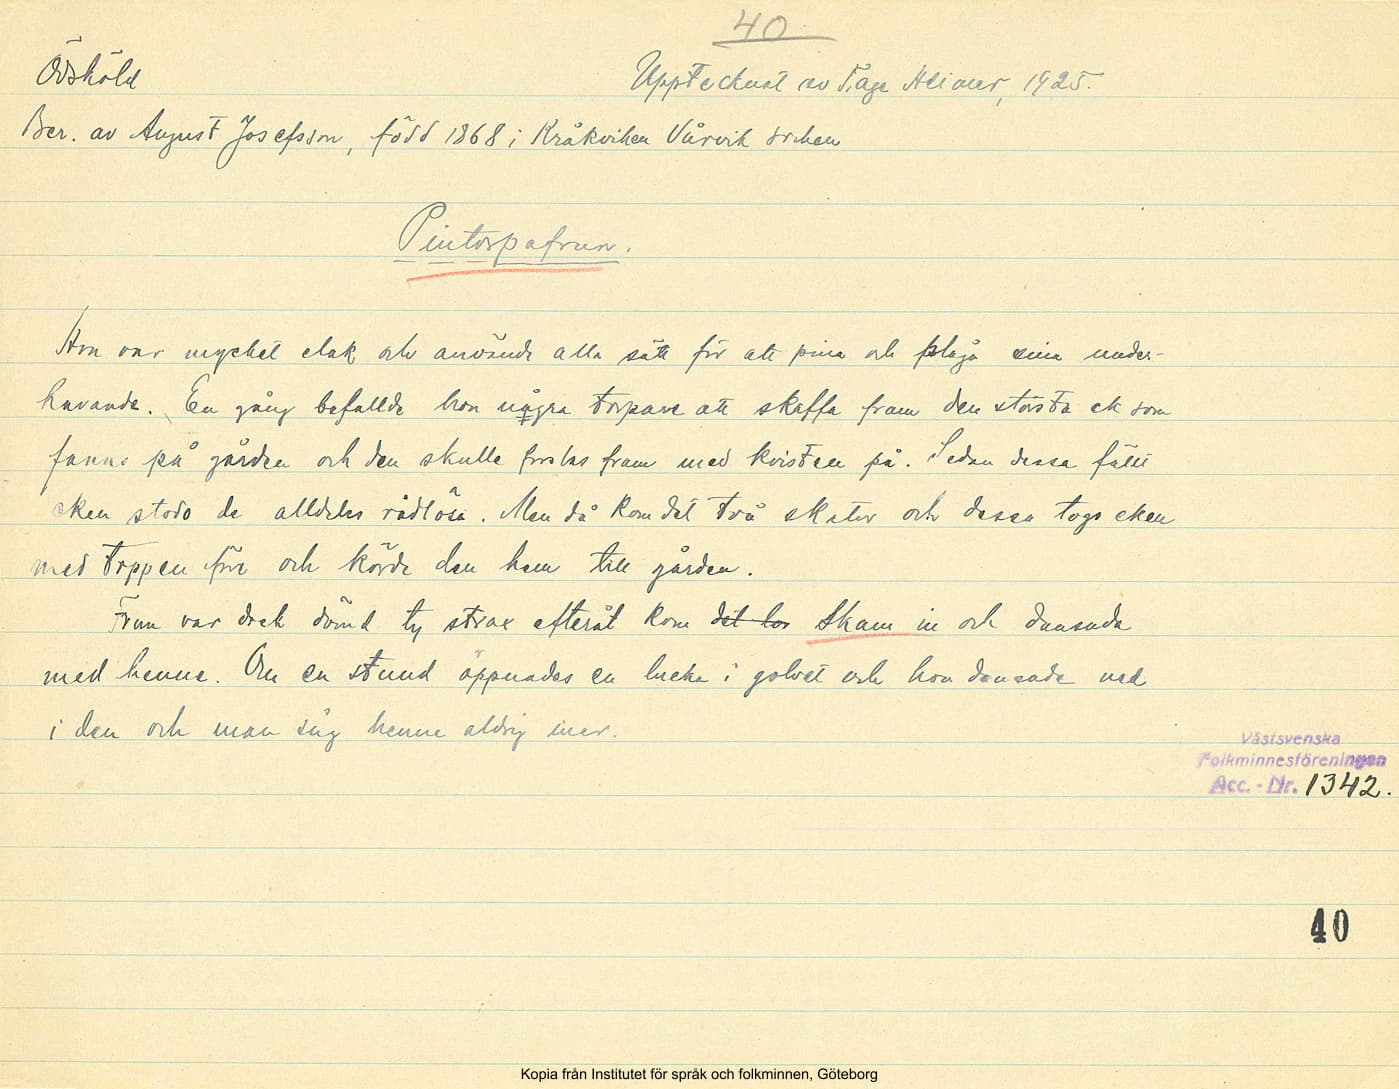 40
Ödsköld
Upptecknat av Tage Heimer, 1925.
Ber. av August Josefsson, född 1868 i Kråkviken Vårvik socken
Pintorpafrun.
Hon var mycket elak och använde alla sätt för att pina och plåga sina under-
havande. En gång befallde hon några torpare att skaffa fram den största ek som
fanns på gården och den skulle forslas fram med kvisten på. Sedan dessa fällt
eken stodo de alldeles rådlösa. Men då kom det två skator och dessa togo eken
med toppen före och körde den hem till gården.
Frun var dock dömd ty strax efteråt kom Skam in och dansade
med henne. Om en stund öppnades en lucka i golvet och hon dansade ned
i den och man såg henne aldrig mer.
Västsvenska
Folkminnesföreningen
Acc. - Nr. 1342.
40
Kopia från Institutet för språk och folkminnen, Göteborg